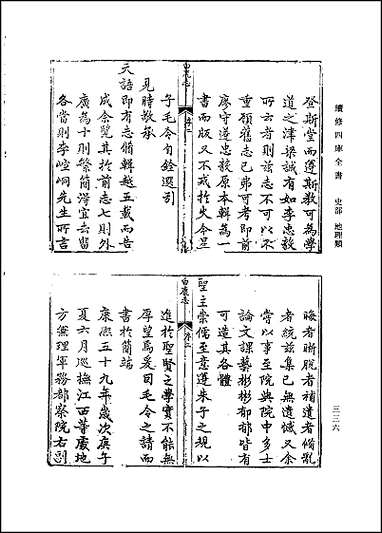 續修四庫全書 史部 地理類
登斯堂而遵斯教可為學
道之津梁誠有如李忠毅
所云者則茲志不可以不
重顧舊志已弗可考即前
廖守遵忠毅原本輯為一
書而版又不戒於火今星
白鹿志 序二
子毛令旬銓選引
見時敬奉
天語即有志脩輯越五載而告
成余覽其於前志七則外
廣為十則繁簡得宜去留
各當則李崆峒先生所言
晦者晰脫者補遺者備亂
者統茲集已無遺憾又余
嘗以事至院與院中多士
論文課藝彬彬郁郁皆有
可造其各體
聖主崇儒至意遵朱子之規以
白鹿志 序三
進於聖賢之學實不能無
厚望焉爰因毛令之請而
書於簡端
康熙五十九年歲次庚子
夏六月巡撫江西等處地
方兼理軍務都察院右副
三二六